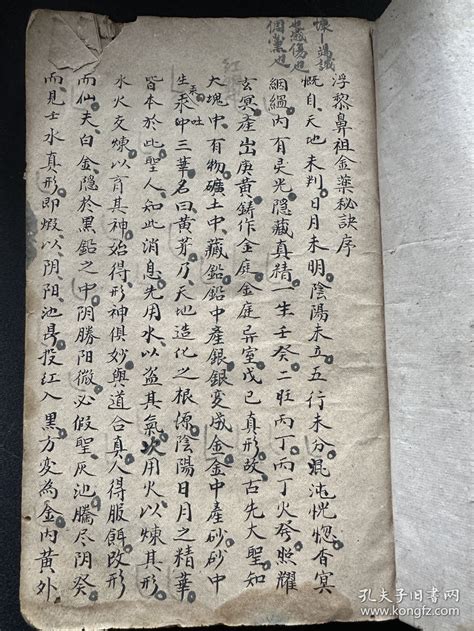 悚―鴻識
也感傷也
個黨也
浮黎鼻祖金藥秘訣序
慨自天地未判日月未明陰陽未立五行未分混沌恍惚杳冥
絪縕內有灵光隱藏真精一生壬癸二旺丙丁丙丁火发照耀
玄冥產出庚黃鋳作金庭金庭异室戊己真形故古先大聖如
大塊中有物礦土中藏鉛鉛中產銀銀变成金金中產砂砂中
生汞吐中三華名曰黃芽乃天地造化之根源陰陽日月之精華
皆本於此聖人知此消息先用水以盗其氣次用火以煉其形
水火交煉以育其神始得形神俱妙與道合真人得服餌改形
而仙夫白金隱於黑鉛之中阴勝阳微必假聖灰池騰尽阴癸
而見壬水真形即煅以阴阳池鼎投红入黑方变為金内黄外
孔夫子旧书网
kongfz.com